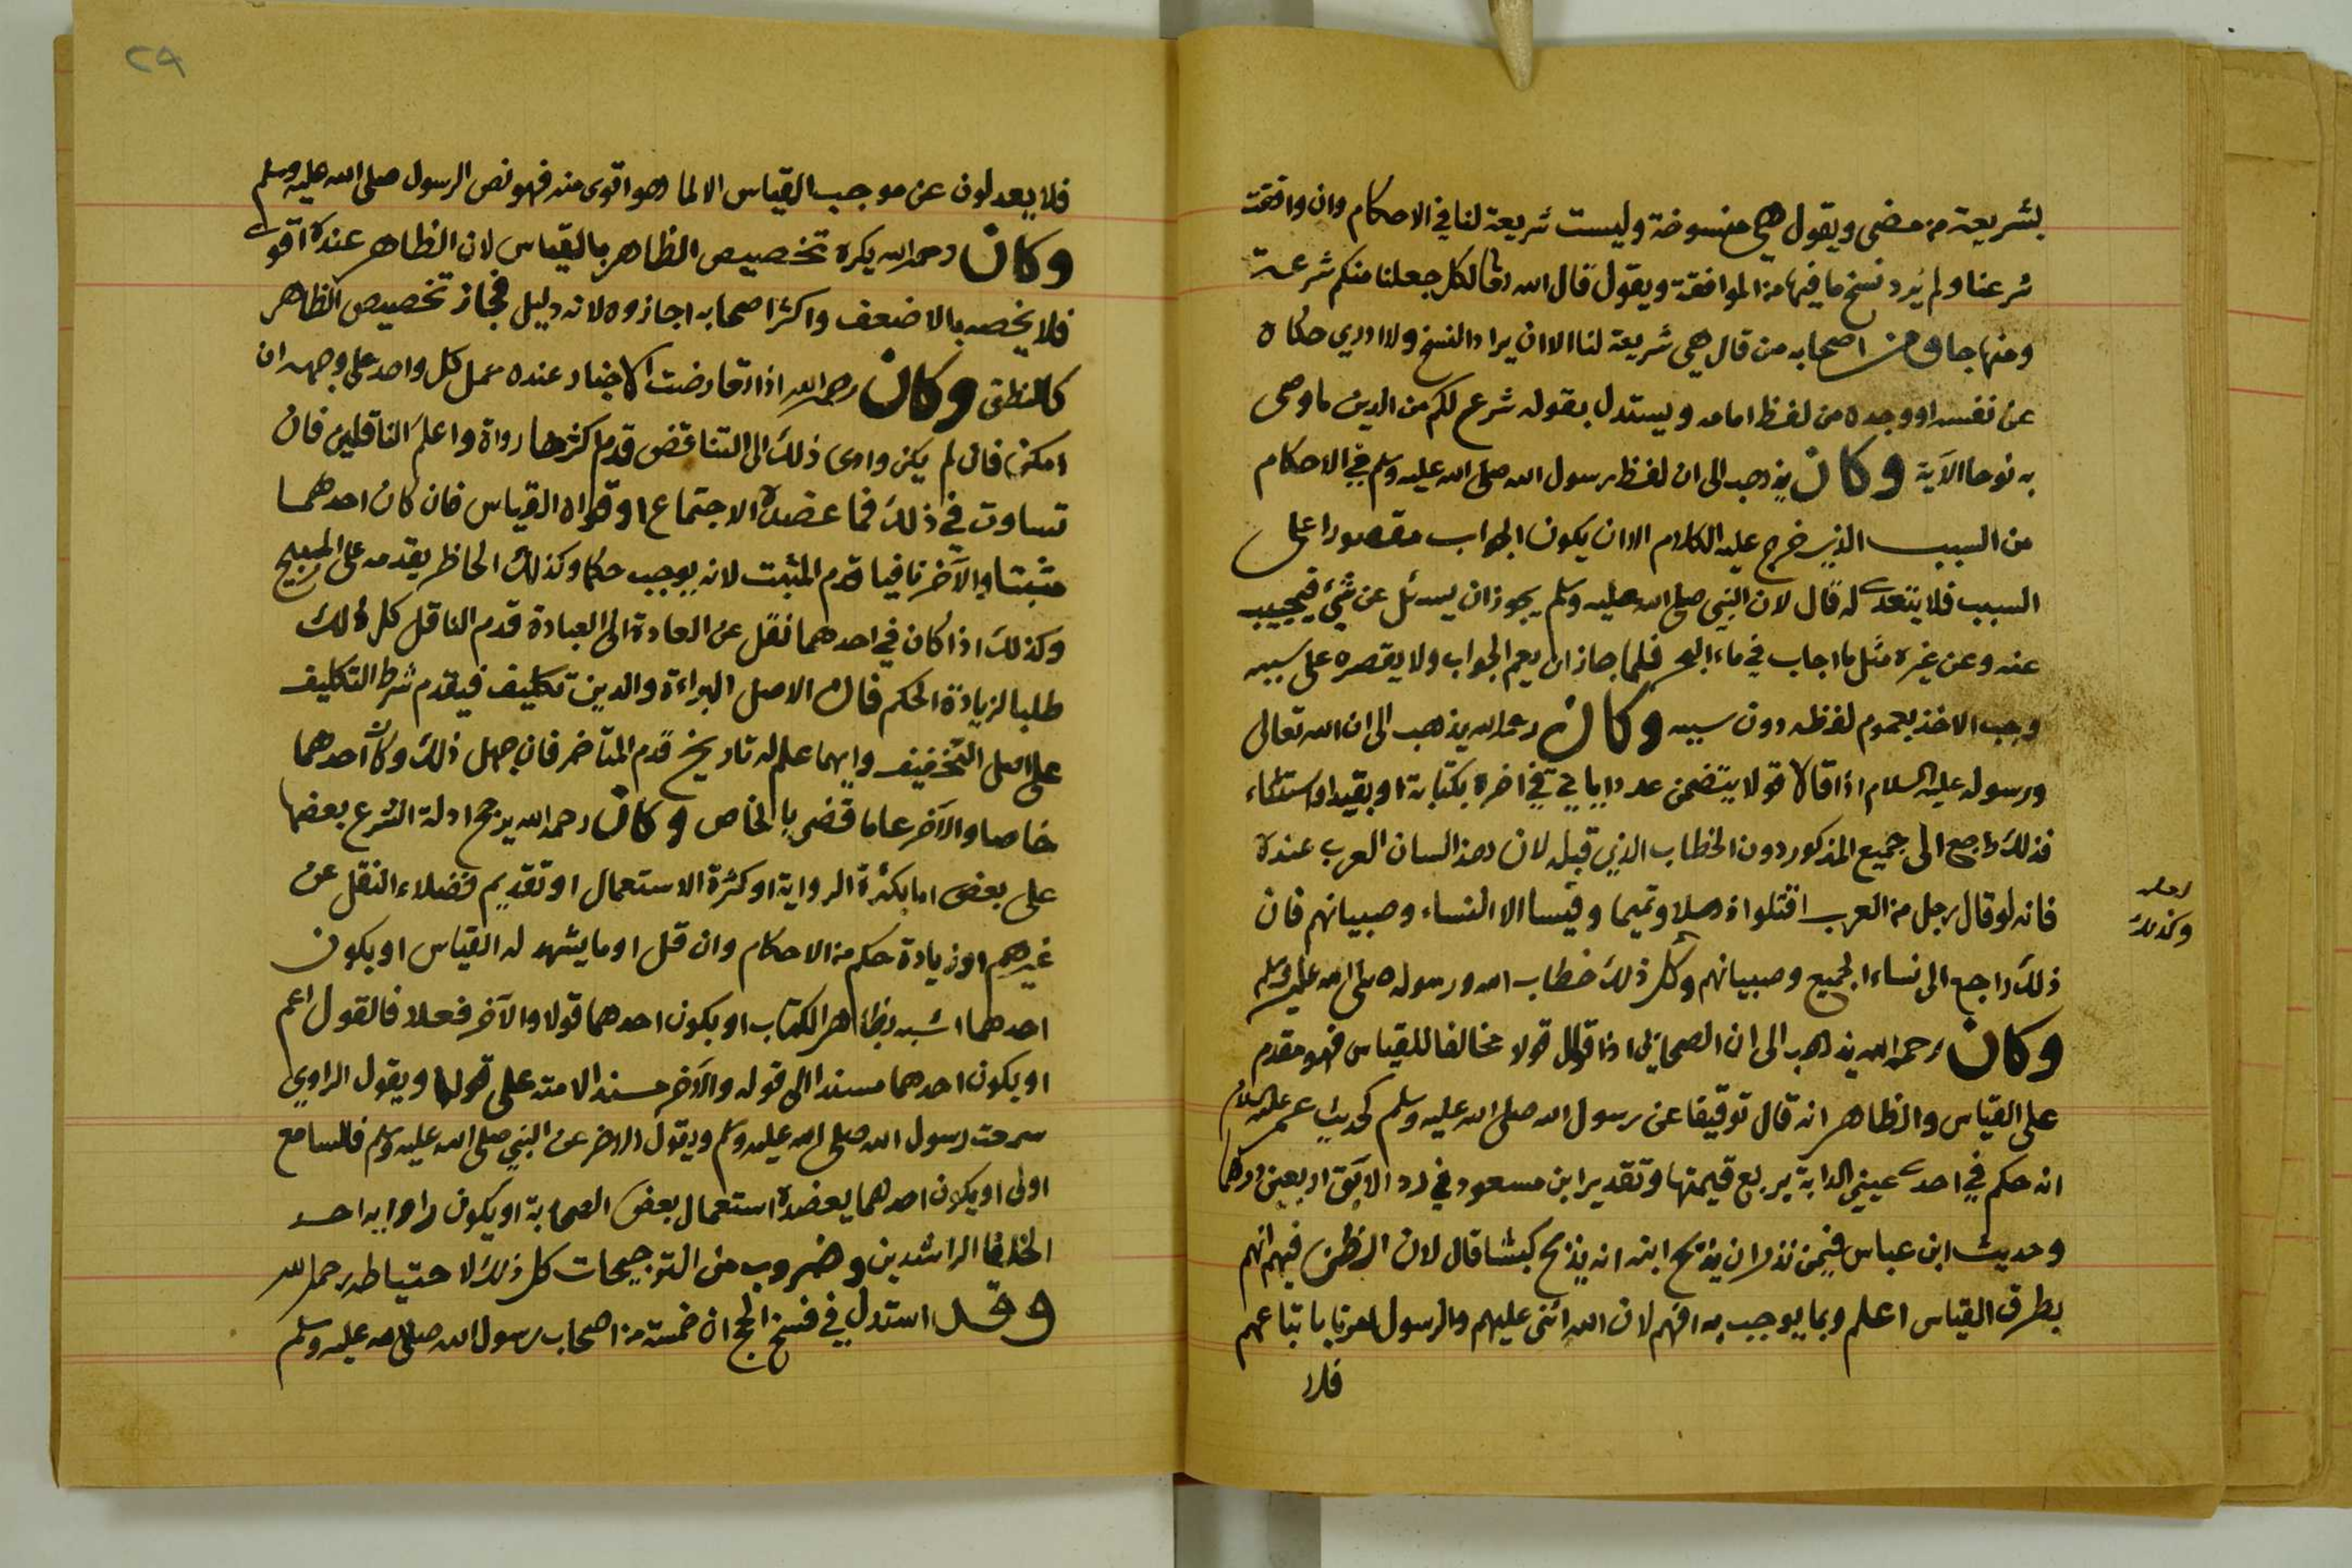 بشريعة من مضى ويقول هي منسوخة وليست شريعة لنا في الاحكام وان وافقت
شرعنا ولم يرد نسخ ما فيها من الموافقة ويقول قال الله تعالى لكل جعلنا منكم شرعة
ومنهاجا ومن اصحابه من قال هي شريعة لنا الا ان يراد النسخ ولا ادري حكاه
عن نفسه او وجده من لفظ امامه ويستدل بقوله شرع لكم من الدين ما وصى
به نوحا الآية وكان يذهب الى ان لفظ رسول الله صلى الله عليه وسلم في الاحكام
من السبب الذي خرج عليه الكلام الا ان يكون الجواب مقصورا على
السبب فلا يتعدى له قال لان النبي صلى الله عليه وسلم يجوز ان يسئل عن شئ فيجيب
عنه وعن غيره مثل ما اجاب في ماء البحر فلما جاز ان يعم الجواب ولا يقصره على سببه
وجب الاخذ بعموم لفظه دون سببه وكان رحمه الله يذهب الى ان الله تعالى
ورسوله عليه السلام اذا قالا قولا يتضمن عددا يأتي في اخره بكتابة او بقيد او استثناء
فذلك راجع الى جميع المذكور دون الخطاب الذي قبله لان هذا لسان العرب عنده
فانه لو قال رجل من العرب اقتلوا ذهلا وتميما وقيسا الا النساء وصبيانهم فان
ذلك راجع الى نساء الجميع وصبيانهم وكل ذلك خطاب الله ورسوله صلى الله عليه وسلم
لعله
وكذلك
وكان رحمه الله يذهب الى ان الصحابي اذا قال قولا مخالفا للقياس فهو مقدم
على القياس والظاهر انه قال توقيفا عن رسول الله صلى الله عليه وسلم كحديث عمر عليه السلام
انه حكم في احدى عيني الدابة بربع قيمتها وتقدير ابن مسعود في رد الآبق اربعين درهما
وحديث ابن عباس فيمن نذر ان يذبح ابنه انه يذبح كبشا قال لان الظن فيهم انهم
بطرق القياس اعلم وبما يوجب به افهم لان الله اثنى عليهم والرسول امرنا باتباعهم
فلا
٢٩
فلا يعدلون عن موجب القياس الا لما هو اقوى منه فهو نص الرسول صلى الله عليه وسلم
وكان رحمه الله يكره تخصيص الظاهر بالقياس لان الظاهر عنده اقوى
فلا يخصه بالاضعف واكثر اصحابه اجازوه لانه دليل فجاز تخصيص الظاهر
كالنطق وكان رحمه الله اذا تعارضت الاخبار عنده عمل كل واحد على وجهه ان
امكن فان لم يكن وادى ذلك الى التناقض قدم اكثرها رواة واعلم الناقلين فان
تساوت في ذلك فما عضده الاجتماع او قواه القياس فان كان احدهما
مثبتا والآخر نافيا قدم المثبت لانه يوجب حكما وكذلك الحاظر يقدمه على المبيح
وكذلك اذا كان في احدهما نقل عن العادة الى العبادة قدم الناقل كل ذلك
طلبا لزيادة الحكم فان الاصل البراءة والدين تكليف فيقدم شرط التكليف
على اصل التخفيف وايهما علم له تاريخ قدم المتأخر فان جهل ذلك وكان احدهما
خاصا والآخر عاما قضى بالخاص وكان رحمه الله يرجح ادلة الشرع بعضها
على بعض اما بكثرة الرواية او كثرة الاستعمال او تقديم فضلاء النقل عن
غيرهم او زيادة حكم من الاحكام وان قل او ما يشهد له القياس او يكون
احدهما اشبه بظاهر الكتاب او يكون احدهما قولا والآخر فعلا فالقول اعم
او يكون احدهما مسندا الى قوله والآخر مسند الامته على قولها ويقول الراوي
سمعت رسول الله صلى الله عليه وسلم ويقول الاخر عن النبي صلى الله عليه وسلم فالسامع
اولى او يكون احدهما يعضده استعمال بعض الصحابة او يكون راوايه احد
الخلفا الراشدين وضروب من الترجيحات كل ذلك لاحتياطه رحمه الله
وقد استدل في فسخ الحج ان خمسة من اصحاب رسول الله صلى الله عليه وسلم